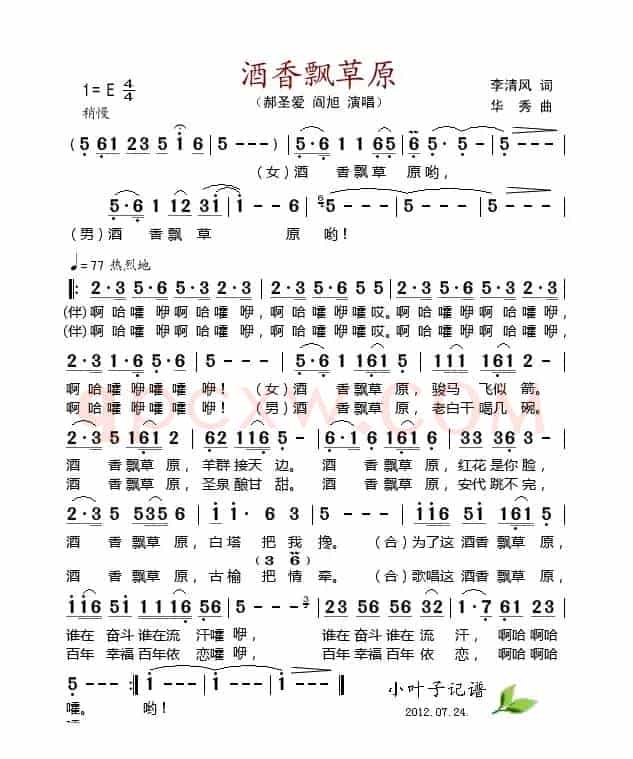 酒香飘草原
1=E 4/4
(郝圣爱 阎旭 演唱)
李清风 词
稍慢
华 秀 曲
(5 61 23 5 i 6 | 5 - - -) | 5·6 1 1 1 65 | 6 5 - - | 5 - - - |
(女)酒 香飘草 原哟,
5·6 1 12 31 | 1 - - 6 | 5 - - - | 5 - - - |
(男)酒 香飘 草 原 哟!
♩=77 热烈地
‖: 2·3 2·3 2·3 2·3 | 2·3 2·3 2·3 1 | 2·3 2·3 2·3 2·3 | 2·3 2·3 2·3 1 |
(伴)啊 哈 嚯 咿啊 哈 嚯 咿, 啊 哈 嚯 咿嚯 咿哎。啊 哈 嚯 咿啊 哈 嚯 咿,
(伴)啊 哈 嚯 咿啊 哈 嚯 咿, 啊 哈 嚯 咿嚯 咿哎。啊 哈 嚯 咿啊 哈 嚯 咿,
2·3 1·6 5·6 5·6 | 5 - - - | 5·6 6 1 161 5 | 111 161 5 - |
啊 哈 嚯 咿嚯 咿嚯 咿! (女)酒 香飘草 原, 骏马 飞似 箭。
啊 哈 嚯 咿嚯 咿嚯 咿! (男)酒 香飘草 原, 老白干 喝几 碗。
2·3 5 161 2 | 62 116 5 - | 6·1 6 1 161 6 | 33 36 3 - |
酒 香飘草 原, 羊群 接天 边。 酒 香飘草 原, 红花 是你 脸,
酒 香飘草 原, 圣泉 酿甘 甜。 酒 香飘草 原, 安代 跳不 完,
2·3 5 535 6 | 1 1·6 6 | 5 - - - | 116 51 161 65 |
酒 香飘草 原, 白塔 把 我 搀。 (合)为了 这 酒香 飘草 原,
(3 6)
酒 香飘草 原, 古榆 把 情 牵。 (合)歌唱 这 酒香 飘草 原,
116 51 1116 56 | 5 - - 3/2 | 116 56 56 32 | 1·7 61 61 61 |
谁在 奋斗 谁在流 汗嚯 咿, 谁在 奋斗 谁在 流 汗, 啊哈 啊哈
百年 幸福 百年依 恋嚯 咿, 百年 幸福 百年 依 恋, 啊哈 啊哈
5 - - - :‖ 1 - - - | 1 - - - | 1 - - - ‖
嚯。 哟!
嚯
小叶子记谱
2012.07.24.
qpcxw.com